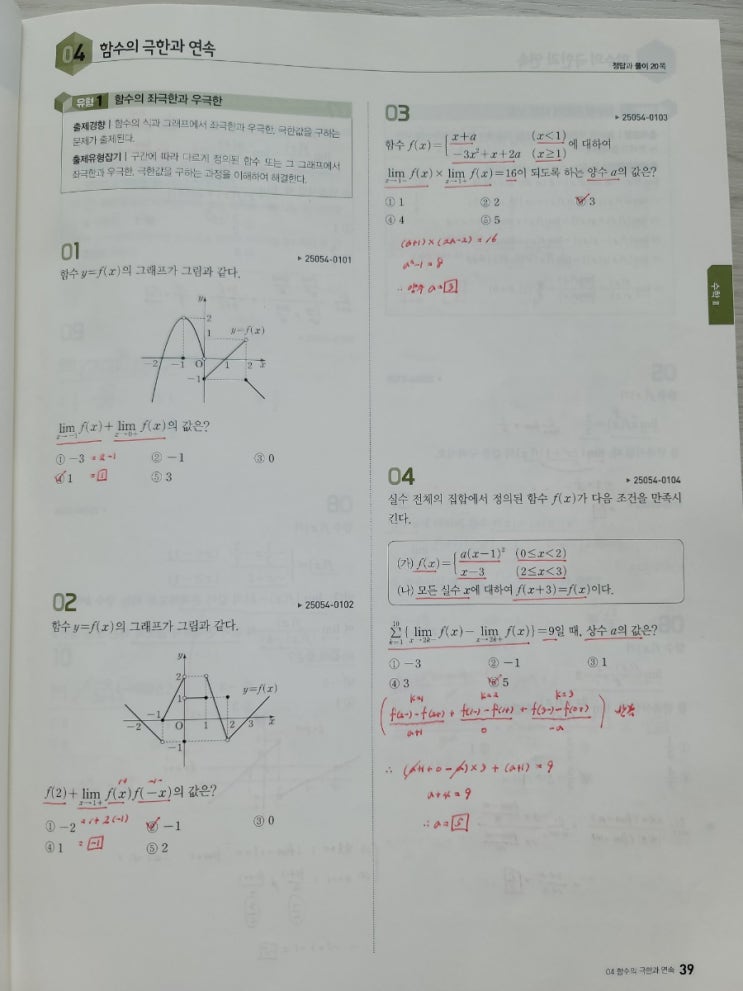 04 함수의 극한과 연속
정답과 풀이 20쪽
유형 1 함수의 좌극한과 우극한
출제경향 | 함수의 식과 그래프에서 좌극한과 우극한, 극한값을 구하는
문제가 출제된다.
출제유형잡기 | 구간에 따라 다르게 정의된 함수 또는 그 그래프에서
좌극한과 우극한, 극한값을 구하는 과정을 이해하여 해결한다.
01
▸ 25054-0101
함수 y=f(x)의 그래프가 그림과 같다.
y
2
1
y=f(x)
-2 -1 O 1 2 x
-1
lim x→-1 f(x)+lim x→0+ f(x)의 값은?
① -3 = 2-1 ② -1 ③ 0
④ 1 = 1 ⑤ 3
02
▸ 25054-0102
함수 y=f(x)의 그래프가 그림과 같다.
y
2
1
y=f(x)
-2 -1 O 1 2 3 x
-1
f(2)+lim x→1+ f(x)f(-x)의 값은?
① -2 = 1+2(-1) ② -1 ③ 0
④ 1 = -1 ⑤ 2
03
▸ 25054-0103
함수 f(x)={ x+a (x<1)
-3x²+x+2a (x≥1) 에 대하여
lim x→1- f(x)×lim x→1+ f(x)=16이 되도록 하는 양수 a의 값은?
① 1 ② 2 ③ 3
④ 4 ⑤ 5
(a+1)×(2a-2)=16
a²-1=8
∴ 양수 a=3
수학 Ⅱ
04
▸ 25054-0104
실수 전체의 집합에서 정의된 함수 f(x)가 다음 조건을 만족시
킨다.
(가) f(x)={ a(x-1)² (0≤x<2)
x-3 (2≤x<3)
(나) 모든 실수 x에 대하여 f(x+3)=f(x)이다.
∑ k=1 10 { lim x→2k- f(x)-lim x→2k+ f(x)}=9일 때, 상수 a의 값은?
① -3 ② -1 ③ 1
④ 3 ⑤ 5
k=1 k=2 k=3
( f(2-)-f(2+) + f(1-)-f(1+) + f(3-)-f(0+) ) 반복
a+1 0 -a
∴ (a+1+0-a)×3+(a+1)=9
a+4=9
∴ a=5
04 함수의 극한과 연속 39